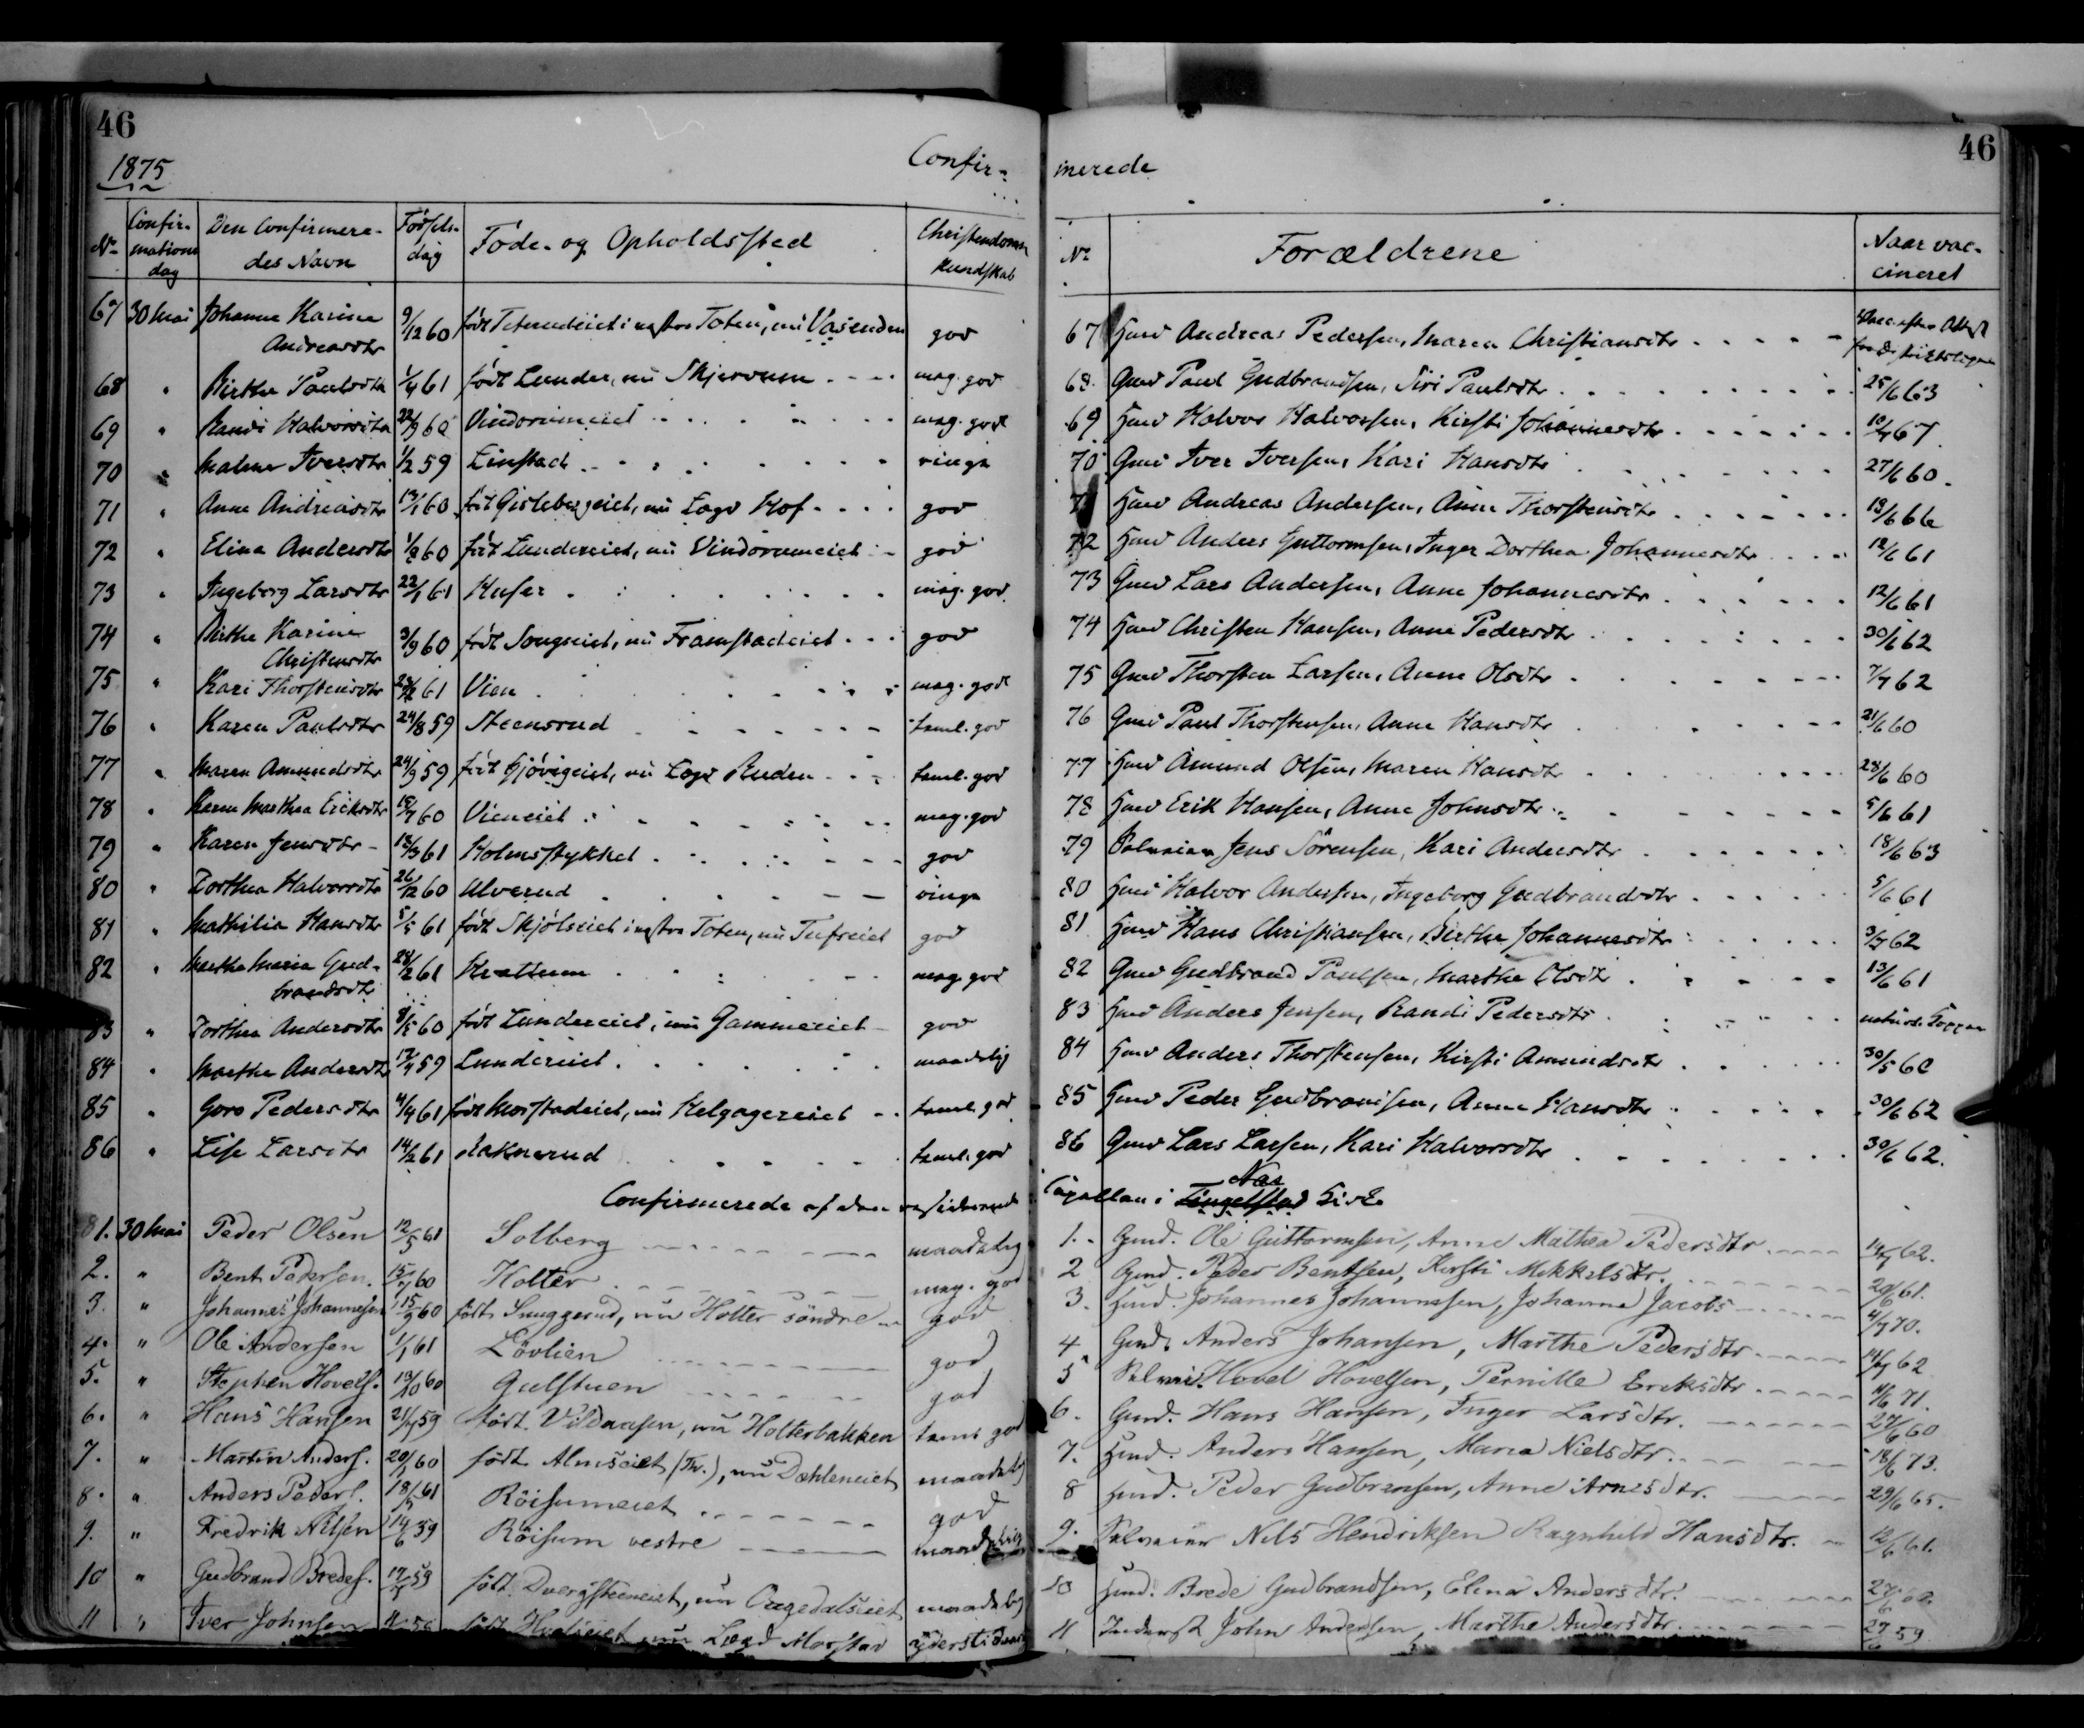 46
1875
Confir-
No
Confir-
mations
dag
Den Confirmere-
des Navn
Fødsels-
dag
Føde- og Opholdssted
Christendoms
kundskab
67 30 Mai Johanne Karine 9/12 60 født i vestre Toten, nu Vasenden god
Andreasdtr
68 " Birthe Paulsdtr 1/4 61 født Lunder, nu Skjervum mag. god
69 " Randi Halvorsdtr 22/9 60 Vindorumeiet mag. god
70 " Malene Iversdtr 1/2 59 Einstad ringe
71 " Anne Andreasdtr 13/1 60 født Gislebergeiet, nu Lægd Hof god
72 " Elina Andersdtr 60 født Lundereiet, nu Vindorumeiet god
73 " Ingeborg Larsdtr 22/1 61 Huser mag. god
74 " Birthe Karine 3/9 60 født Songseiet, nu Framstadeiet god
Christensdtr
75 " Kari Thorstensdtr 61 Vien mag. god
76 " Karen Paulsdtr 24/8 59 Steensrud taml. god
77 " Maren Amundsdtr 24/9 59 født Gjøvigeiet, nu Lægd Ruden taml. god
78 " Karen Marthea Eriksdtr 18/7 60 Vieneiet mag. god
79 " Karen Jensdtr 18/3 61 Holmsstykket god
80 " Dorthea Halvorsdtr 26/12 60 Alverud ringe
81 " Mathilia Hansdtr 5/5 61 født Skjølseiet i vestre Toten, nu Tufteeiet god
82 " Marthe Maria Gud- 28/2 61 Krattum mag. god
brandsdtr
83 " Dorthea Andersdtr 8/5 60 født Lundereiet, nu Gammeeiet god
84 " Marthe Andersdtr 17/4 59 Lundereiet maadelig
85 " Goro Pedersdtr 4/4 61 født Morstadeiet, nu Helgagereiet taml. god
86 " Lise Larsdtr 14/2 61 Raknerud taml. god
Confirmerede af den residerende
1. 30 Mai Peder Olsen 12/5 61 Solberg maadelig
2. " Bent Pedersen. 60 Holter mag. god
3. " Johannes Johannesen 15/9 60 født Snuggerud, nu Holter søndre god
4. " Ole Andersen 1/1 61 Løvlien god
5. " Stephen Hovels. 13/10 60 Gulstuen god
6. " Hans Hansen 59 født. Vildaasen, nu Holterbakken taml god
7. " Martin Anders. 20/1 60 født Almseiet (Thr.), nu Dæhleneiet maadelig
8. " Anders Peders. 61 Röisumeiet god
9. " Fredrik Nilsen 14/6 59 Röisum vestre maadelig
10 " Gudbrand Bredes. 59 født Dvergsteneiet, nu Aagedalseiet maadelig
11 " Iver Johnsen nu Lægd Morstad
46
merede
No
Forældrene
Naar vac-
cineret
67 Hmd Andreas Pedersen, Maren Christiansdtr
68 Gmd Paul Gudbrandsen, Siri Paulsdtr 25/6 63
69 Hmd Halvor Halvorsen, Kirsti Johannesdtr 67
70 Gmd Iver Iversen, Kari Hansdtr 27/6 60
71 Hmd Andreas Andersen, Anne Thorstensdtr 13/6 66
72 Hmd Anders Guttormsen, Inger Dorthea Johannesdtr 12/6 61
73 Gmd Lars Andersen, Anne Johannesdtr 12/6 61
74 Hmd Christen Hansen, Anne Pedersdtr 30/6 62
75 Gmd Thorsten Larsen, Anne Olsdtr 7/7 62
76 Gmd Paul Thorstensen, Anne Hansdtr 21/6 60
77 Hmd Amund Olsen, Maren Hansdtr 28/6 60
78 Hmd Erik Hansen, Anne Johnsdtr 5/6 61
79 Selveier Jens Sørensen, Kari Andersdtr 18/6 63
80 Hmd Halvor Andersen, Ingeborg Gudbrandsdtr 5/6 61
81 Hmd Hans Christiansen, Birthe Johannesdtr 3/7 62
82 Gmd Gudbrand Paulsen, Marthe Olsdtr 13/6 61
83 Hmd Anders Jensen, Randi Pedersdtr naturl. Kopper
84 Hmd Anders Thorstensen, Kirsti Amundsdtr 30/5 60
85 Hmd Peder Gudbrandsen, Anne Hansdtr 30/6 62
86 Gmd Lars Larsen, Kari Halvorsdtr 30/6 62.
Næs
Capellan i Tingelstad Kirke
1. Gmd. Ole Guttormsen, Anne Mathea Pedersdtr 62.
2 Gmd. Peder Bentsen, Kirsti Mikkelsdtr. 20/6 61.
3. Hmd. Johannes Johannesen, Johanne Jacobs 4/7 70.
4 Gmd. Anders Johansen, Marthe Pedersdtr 62
5 Selveier Hovel Hovelsen, Pernille Eriksdtr 71.
6. Gmd. Hans Hansen, Inger Larsdtr. 27/6 60
7. Hmd. Anders Hansen, Maria Nielsdtr. 18/6 73.
8 Hmd. Peder Gudbransen, Anne Arnesdtr. 29/6 65.
9. Selveier Nils Hendriksen Ragnhild Hansdtr. 12/6 61.
10 Hmd. Brede Gudbrandsen, Elena Andersdtr.
11 Inderst John Andersen, Marthe Andersdtr. 27/6 59